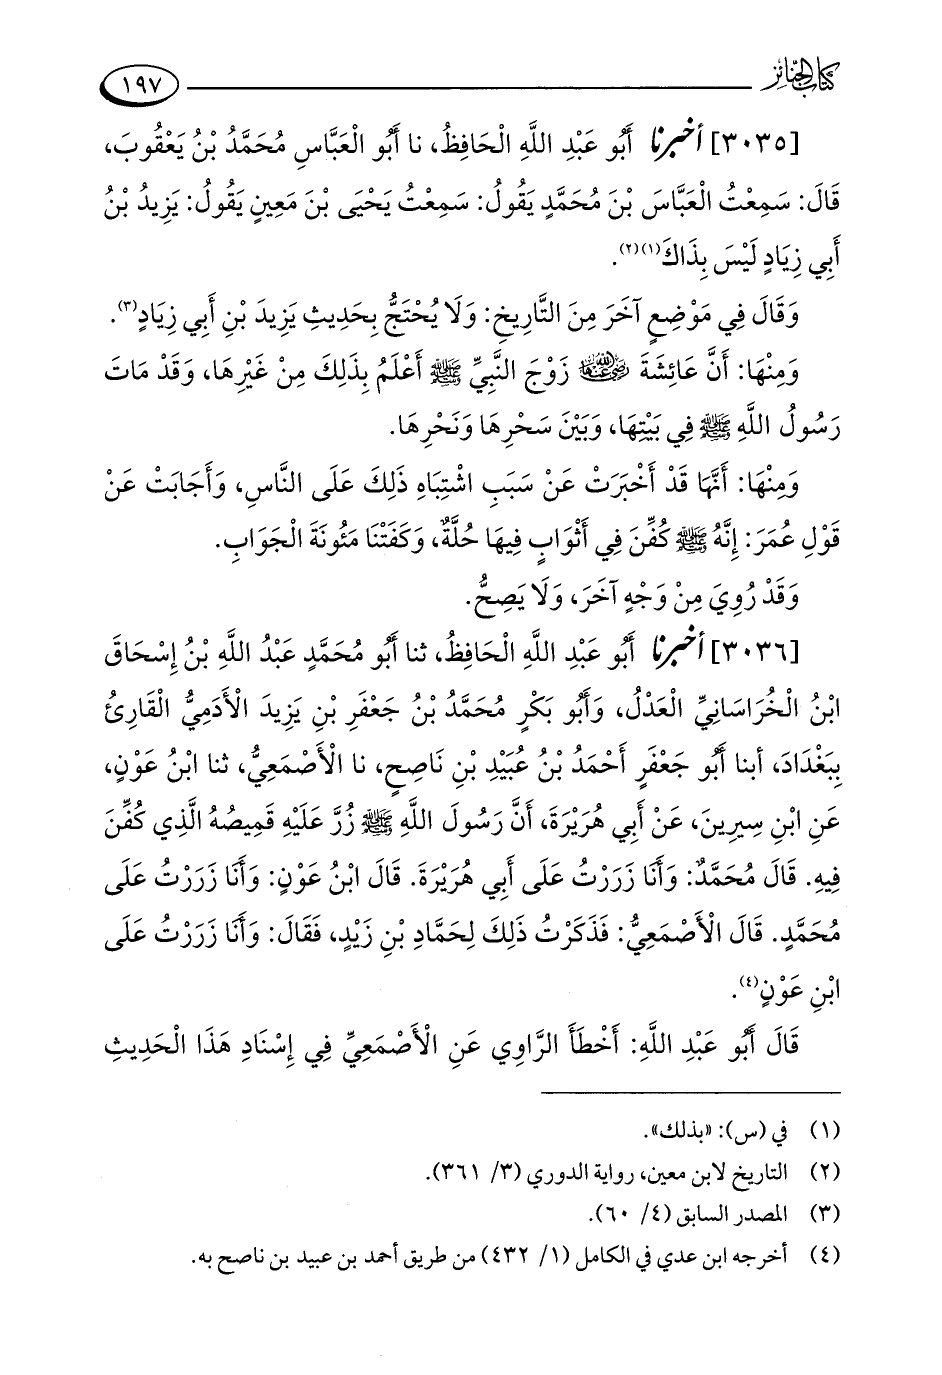 كتاب الجنائز
١٩٧
[٣٠٣٥] أخبرنا أَبُو عَبْدِ اللَّهِ الْحَافِظُ، نا أَبُو الْعَبَّاسِ مُحَمَّدُ بْنُ يَعْقُوبَ،
قَالَ: سَمِعْتُ الْعَبَّاسَ بْنَ مُحَمَّدٍ يَقُولُ: سَمِعْتُ يَحْيَى بْنَ مَعِينٍ يَقُولُ: يَزِيدُ بْنُ
أَبِي زِيَادٍ لَيْسَ بِذَاكَ(١)(٢).
وَقَالَ فِي مَوْضِعٍ آخَرَ مِنَ التَّارِيخِ: وَلَا يُحْتَجُّ بِحَدِيثِ يَزِيدَ بْنِ أَبِي زِيَادٍ(٣).
وَمِنْهَا: أَنَّ عَائِشَةَ رضي الله عنها زَوْجَ النَّبِيِّ ﷺ أَعْلَمُ بِذَلِكَ مِنْ غَيْرِهَا، وَقَدْ مَاتَ
رَسُولُ اللَّهِ ﷺ فِي بَيْتِهَا، وَبَيْنَ سَحْرِهَا وَنَحْرِهَا.
وَمِنْهَا: أَنَّهَا قَدْ أَخْبَرَتْ عَنْ سَبَبِ اشْتِبَاهِ ذَلِكَ عَلَى النَّاسِ، وَأَجَابَتْ عَنْ
قَوْلِ عُمَرَ: إِنَّهُ ﷺ كُفِّنَ فِي أَثْوَابٍ فِيهَا حُلَّةٌ، وَكَفَتْنَا مَئُونَةَ الْجَوَابِ.
وَقَدْ رُوِيَ مِنْ وَجْهٍ آخَرَ، وَلَا يَصِحُّ.
[٣٠٣٦] أخبرنا أَبُو عَبْدِ اللَّهِ الْحَافِظُ، ثنا أَبُو مُحَمَّدٍ عَبْدُ اللَّهِ بْنُ إِسْحَاقَ
ابْنُ الْخُرَاسَانِيِّ الْعَدْلُ، وَأَبُو بَكْرٍ مُحَمَّدُ بْنُ جَعْفَرِ بْنِ يَزِيدَ الْأَدَمِيُّ الْقَارِئُ
بِبَغْدَادَ، أبنا أَبُو جَعْفَرٍ أَحْمَدُ بْنُ عُبَيْدِ بْنِ نَاصِحٍ، نا الْأَصْمَعِيُّ، ثنا ابْنُ عَوْنٍ،
عَنِ ابْنِ سِيرِينَ، عَنْ أَبِي هُرَيْرَةَ، أَنَّ رَسُولَ اللَّهِ ﷺ زُرَّ عَلَيْهِ قَمِيصُهُ الَّذِي كُفِّنَ
فِيهِ. قَالَ مُحَمَّدٌ: وَأَنَا زَرَرْتُ عَلَى أَبِي هُرَيْرَةَ. قَالَ ابْنُ عَوْنٍ: وَأَنَا زَرَرْتُ عَلَى
مُحَمَّدٍ. قَالَ الْأَصْمَعِيُّ: فَذَكَرْتُ ذَلِكَ لِحَمَّادِ بْنِ زَيْدٍ، فَقَالَ: وَأَنَا زَرَرْتُ عَلَى
ابْنِ عَوْنٍ(٤).
قَالَ أَبُو عَبْدِ اللَّهِ: أَخْطَأَ الرَّاوِي عَنِ الْأَصْمَعِيِّ فِي إِسْنَادِ هَذَا الْحَدِيثِ
(١) في (س): «بذلك».
(٢) التاريخ لابن معين، رواية الدوري (٣/ ٣٦١).
(٣) المصدر السابق (٤/ ٦٠).
(٤) أخرجه ابن عدي في الكامل (١/ ٤٣٢) من طريق أحمد بن عبيد بن ناصح به.